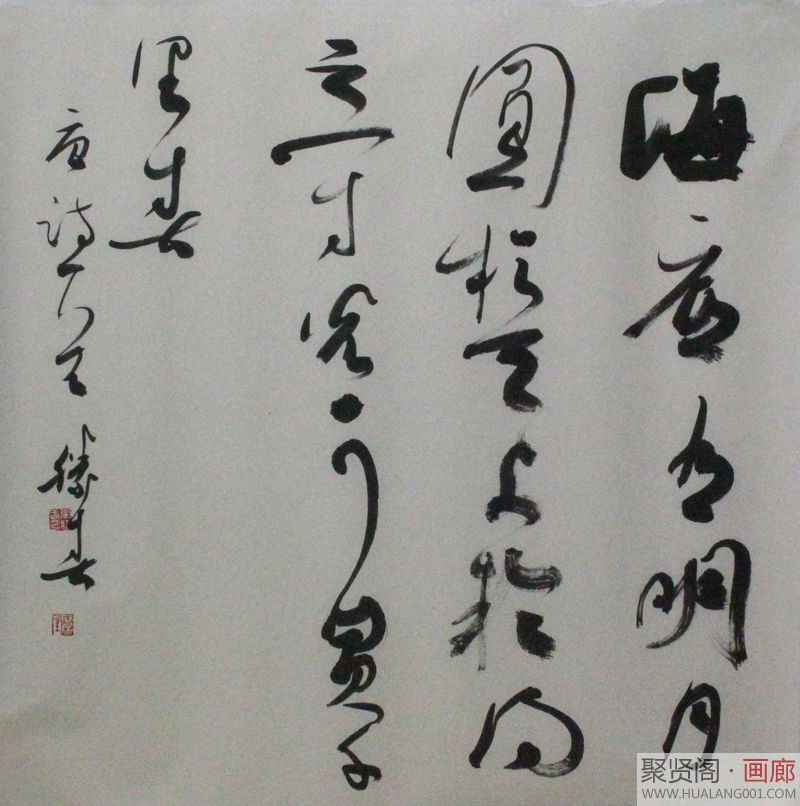 海底有明月
圓於天上輪得
之一寸光可買千
里春
唐诗一首 勝春
聚贤阁·画廊
WWW.HUALANG001.COM